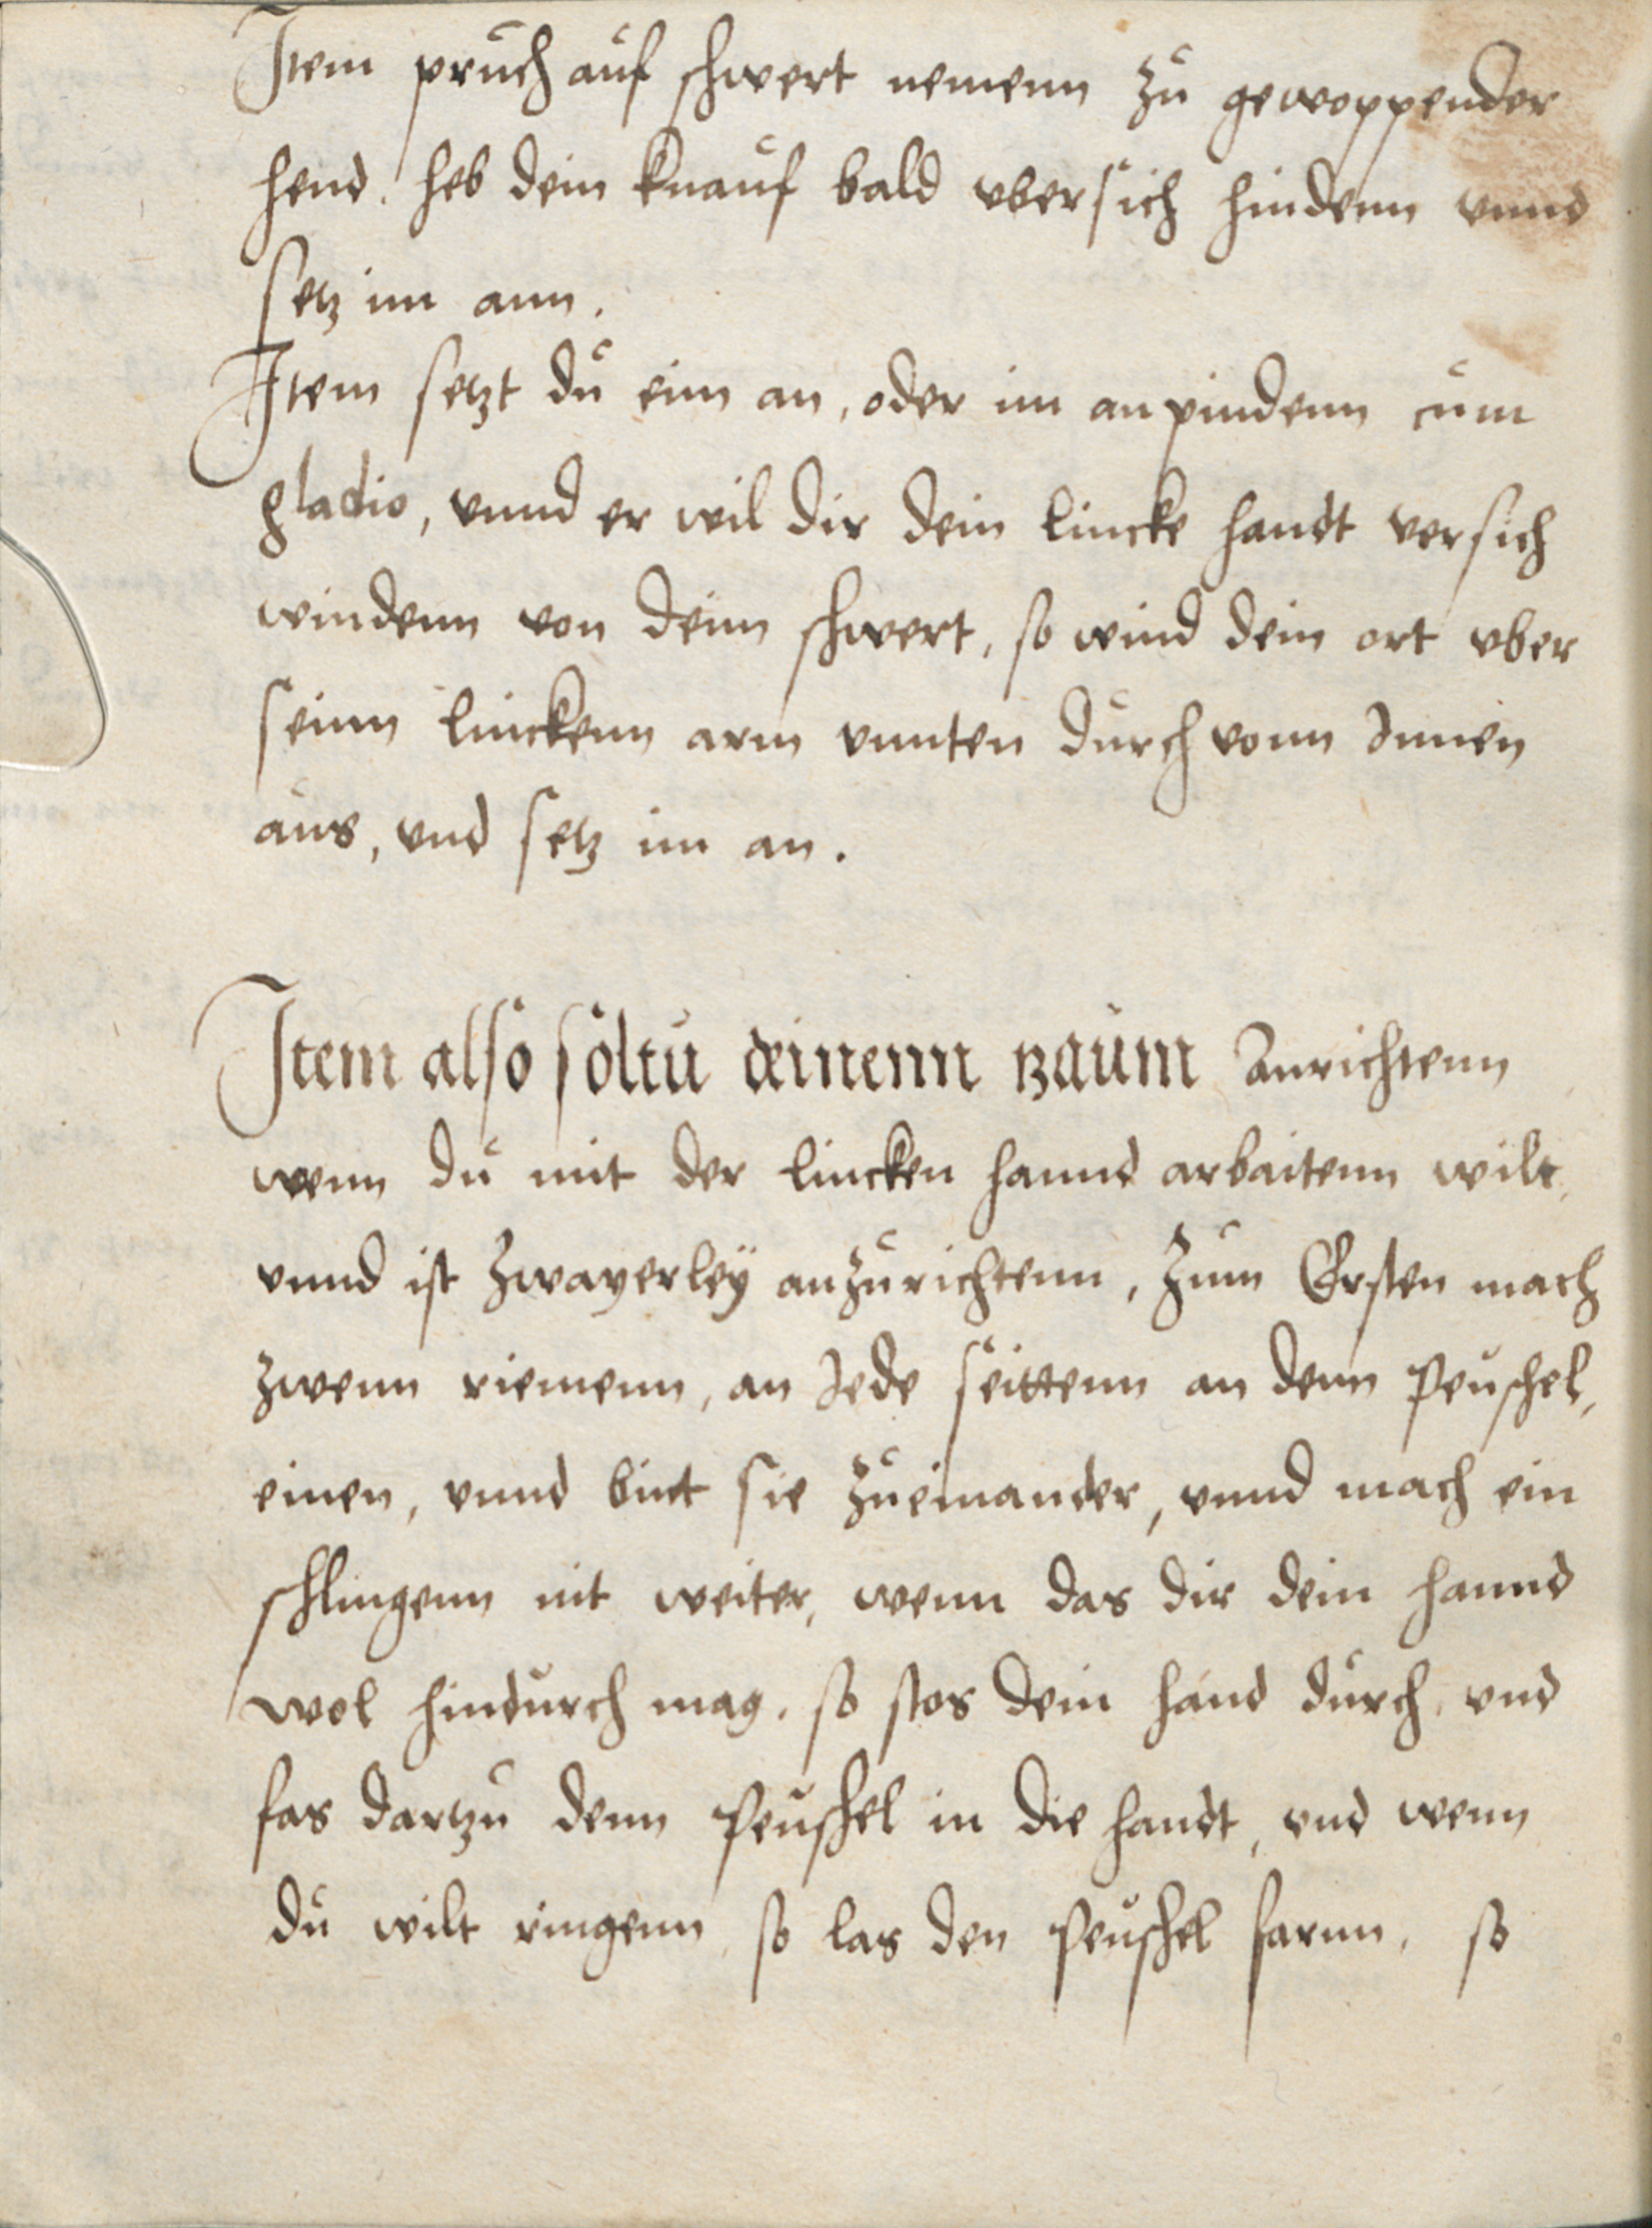 Item pruch auf schwert nemenn zu gewoppender
hend. heb dein knauf bald vbersich hindenn vnnd
setz im ann.
Item setzt du einn an, oder im anpindenn cum
gladio, vnnd er wil dir dein lincke handt versich
windenn von deim schwert, so wind dein ort vber
seinn linckenn arm vnnten durch vonn Innen
aus, vnd setz im an.
Item also soltu deinenn zaum Anrichtenn
wenn du mit der lincken hannd arbaitenn wilt,
vnnd ist zwayerley anzurichtenn, zum Ersten mach
zwenn riemenn, an Iede seittenn an denn Peuschel,
einen, vnnd bint sie zueinander, vnnd mach ein
schlingenn nit weiter, wenn das dir dein hannd
wol hindurch mag. so stos dein hand durch, vnd
fas dartzu denn Peuschel in die handt, vnd wenn
du wilt ringenn, so las den Peuschel farnn, so